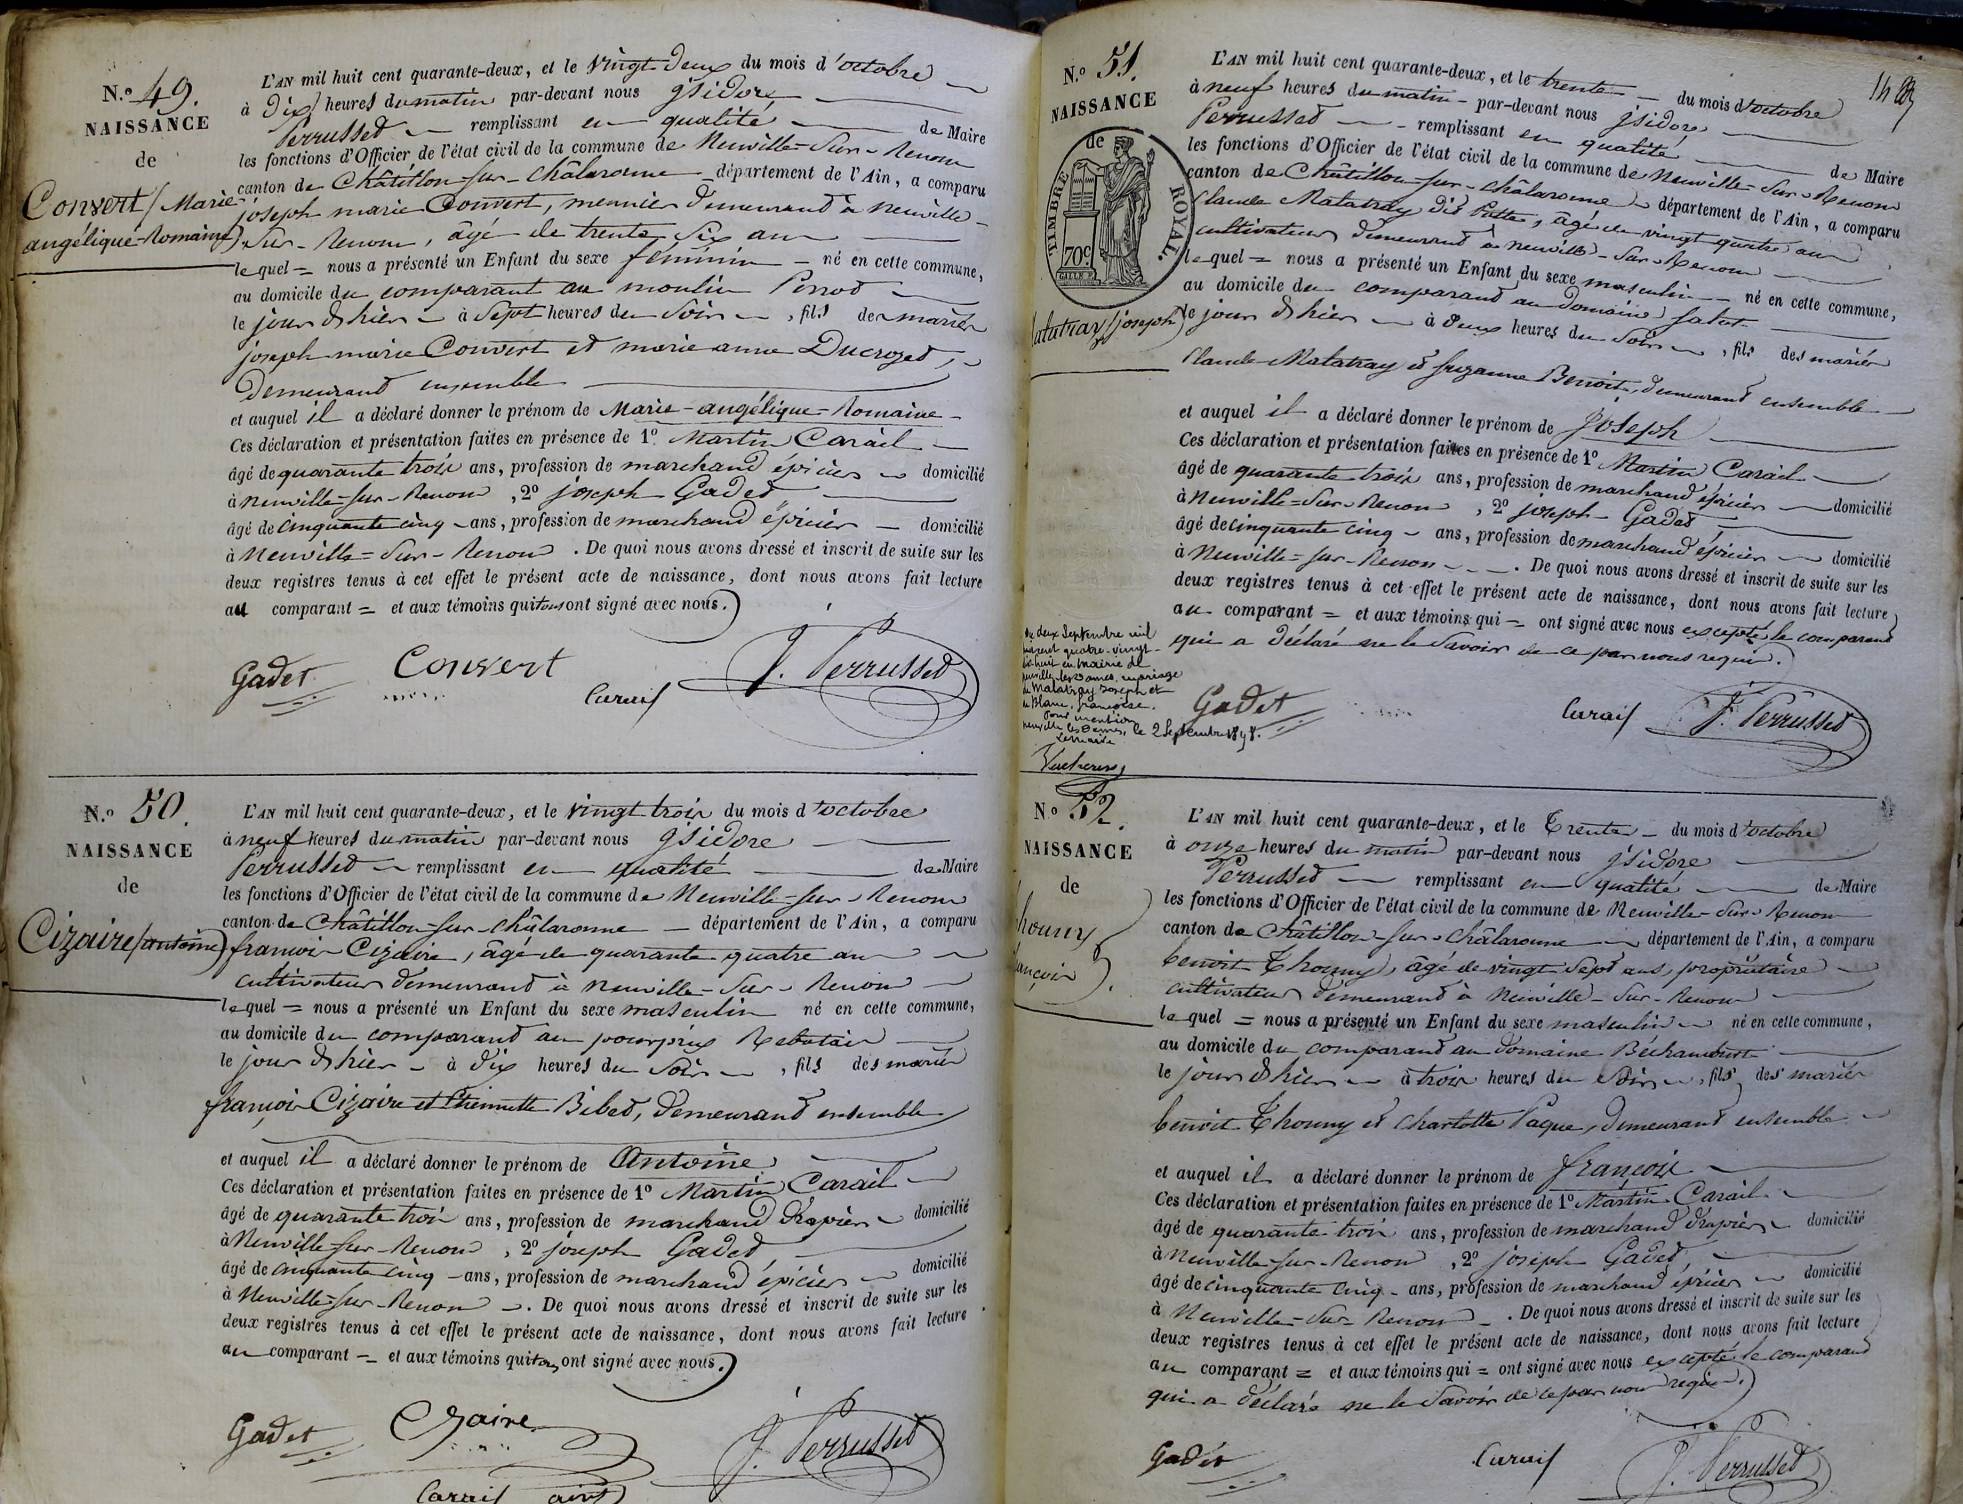 N.o 49.
NAISSANCE
de
Convert (Marie
angélique-Romaine)
L'AN mil huit cent quarante-deux, et le vingt deux du mois d'octobre
à dix heures du matin par-devant nous jsidore
Perrussed remplissant en qualité de Maire
les fonctions d'Officier de l'état civil de la commune de Neuville-sur-Renom
canton de Châtillon-sur-Châlaronne département de l'Ain, a comparu
joseph marie Convert, meunier demeurand à neuville-
sur-Renom, âgé de trente six ans
lequel = nous a présenté un Enfant du sexe féminin né en cette commune,
au domicile du comparant au moulin Perrod
le jour d'hier à sept heures du soir, fils de mariés
joseph marie Convert et marie anne Ducrozed,
demeurand ensemble
et auquel il a déclaré donner le prénom de Marie-angélique=Romaine
Ces déclaration et présentation faites en présence de 1o Martin Carail
âgé de quarante trois ans, profession de marchand épicier domicilié
à Neuville=sur-Renom, 2o joseph Gaded
âgé de cinquante cinq ans, profession de marchand épicier domicilié
à Neuville=sur-Renom. De quoi nous avons dressé et inscrit de suite sur les
deux registres tenus à cet effet le présent acte de naissance, dont nous avons fait lecture
au comparant = et aux témoins qui tous ont signé avec nous.
Gadet Convert Carail J. Perrussed
N.o 50.
NAISSANCE
de
Cizaire (antoine)
L'AN mil huit cent quarante-deux, et le vingt trois du mois d'octobre
à neuf heures du matin par-devant nous jsidore
Perrussed remplissant en qualité de Maire
les fonctions d'Officier de l'état civil de la commune de Neuville-sur-Renom
canton de Châtillon-sur-châlaronne département de l'Ain, a comparu
francois Cizaire, âgé de quarante quatre ans
cultivateur demeurand à neuville-sur-Renom
lequel = nous a présenté un Enfant du sexe masculin né en cette commune,
au domicile du comparand au pourpris
le jour d'hier à dix heures du soir, fils des mariés
françois Cizaire et Etiennette Bibed, demeurand ensemble
et auquel il a déclaré donner le prénom de Antoine
Ces déclaration et présentation faites en présence de 1o Martin Carail
âgé de quarante trois ans, profession de marchand drapier domicilié
à Neuville-sur-Renom, 2o joseph Gaded
âgé de cinquante cinq ans, profession de marchand épicier domicilié
à Neuville-sur-Renom. De quoi nous avons dressé et inscrit de suite sur les
deux registres tenus à cet effet le présent acte de naissance, dont nous avons fait lecture
au comparant = et aux témoins qui tous ont signé avec nous.
Gadet Cizaire J. Perrussed
Carail
N.o 51.
NAISSANCE
de
TIMBRE ROYAL.
70c
Malatray (joseph)
L'AN mil huit cent quarante-deux, et le trente du mois d'octobre
à neuf heures du matin par-devant nous jsidore
Perrussed remplissant en qualité de Maire
les fonctions d'Officier de l'état civil de la commune de Neuville-sur-Renom
canton de Châtillon-sur-châlaronne département de l'Ain, a comparu
Claude Malatray dit Patte, âgé de vingt quatre ans
cultivateur demeurand à neuville-sur-Renom
lequel = nous a présenté un Enfant du sexe masculin né en cette commune,
au domicile du comparand au domaine
le jour d'hier à deux heures du soir, fils des mariés
Claude Malatray et suzanne Benoit, demeurand ensemble
et auquel il a déclaré donner le prénom de joseph
Ces déclaration et présentation faites en présence de 1o Martin Carail
âgé de quarante trois ans, profession de marchand épicier domicilié
à Neuville=sur-Renom, 2o joseph Gaded
âgé de cinquante cinq ans, profession de marchand épicier domicilié
à Neuville=sur-Renom. De quoi nous avons dressé et inscrit de suite sur les
deux registres tenus à cet effet le présent acte de naissance, dont nous avons fait lecture
au comparant = et aux témoins qui = ont signé avec nous excepté le comparand
qui a déclaré ne le savoir de ce par nous requis.
deux Septembre mil
huit cent quatre-vingt-
dix huit en mairie de
Neuville-les-Dames, mariage
de Malatray Joseph et
de Blanc, françoise.
Pour mention
Neuville les Dames, le 2 Septembre 1898.
Le Maire
Gadet Carail J. Perrussed
N.o 52.
NAISSANCE
de
Thouny
françois
L'AN mil huit cent quarante-deux, et le Trente du mois d'octobre
à onze heures du matin par-devant nous jsidore
Perrussed remplissant en qualité de Maire
les fonctions d'Officier de l'état civil de la commune de Neuville-sur-Renom
canton de Châtillon-sur-châlaronne département de l'Ain, a comparu
benoit Thouny, âgé de vingt sept ans, propriétaire
cultivateur demeurand à Neuville-sur-Renom
lequel = nous a présenté un Enfant du sexe masculin né en cette commune,
au domicile du comparand au domaine
le jour d'hier à trois heures du soir, fils des mariés
benoit Thouny et Charlotte Paque, demeurant ensemble
et auquel il a déclaré donner le prénom de françois
Ces déclaration et présentation faites en présence de 1o Martin Carail
âgé de quarante trois ans, profession de marchand drapier domicilié
à Neuville-sur-Renom, 2o joseph Gaded
âgé de cinquante cinq ans, profession de marchand épicier domicilié
à Neuville-sur-Renom. De quoi nous avons dressé et inscrit de suite sur les
deux registres tenus à cet effet le présent acte de naissance, dont nous avons fait lecture
au comparant = et aux témoins qui = ont signé avec nous excepté le comparand
qui a déclaré ne le savoir de ce par nous requis.
Gadet Carail J. Perrussed